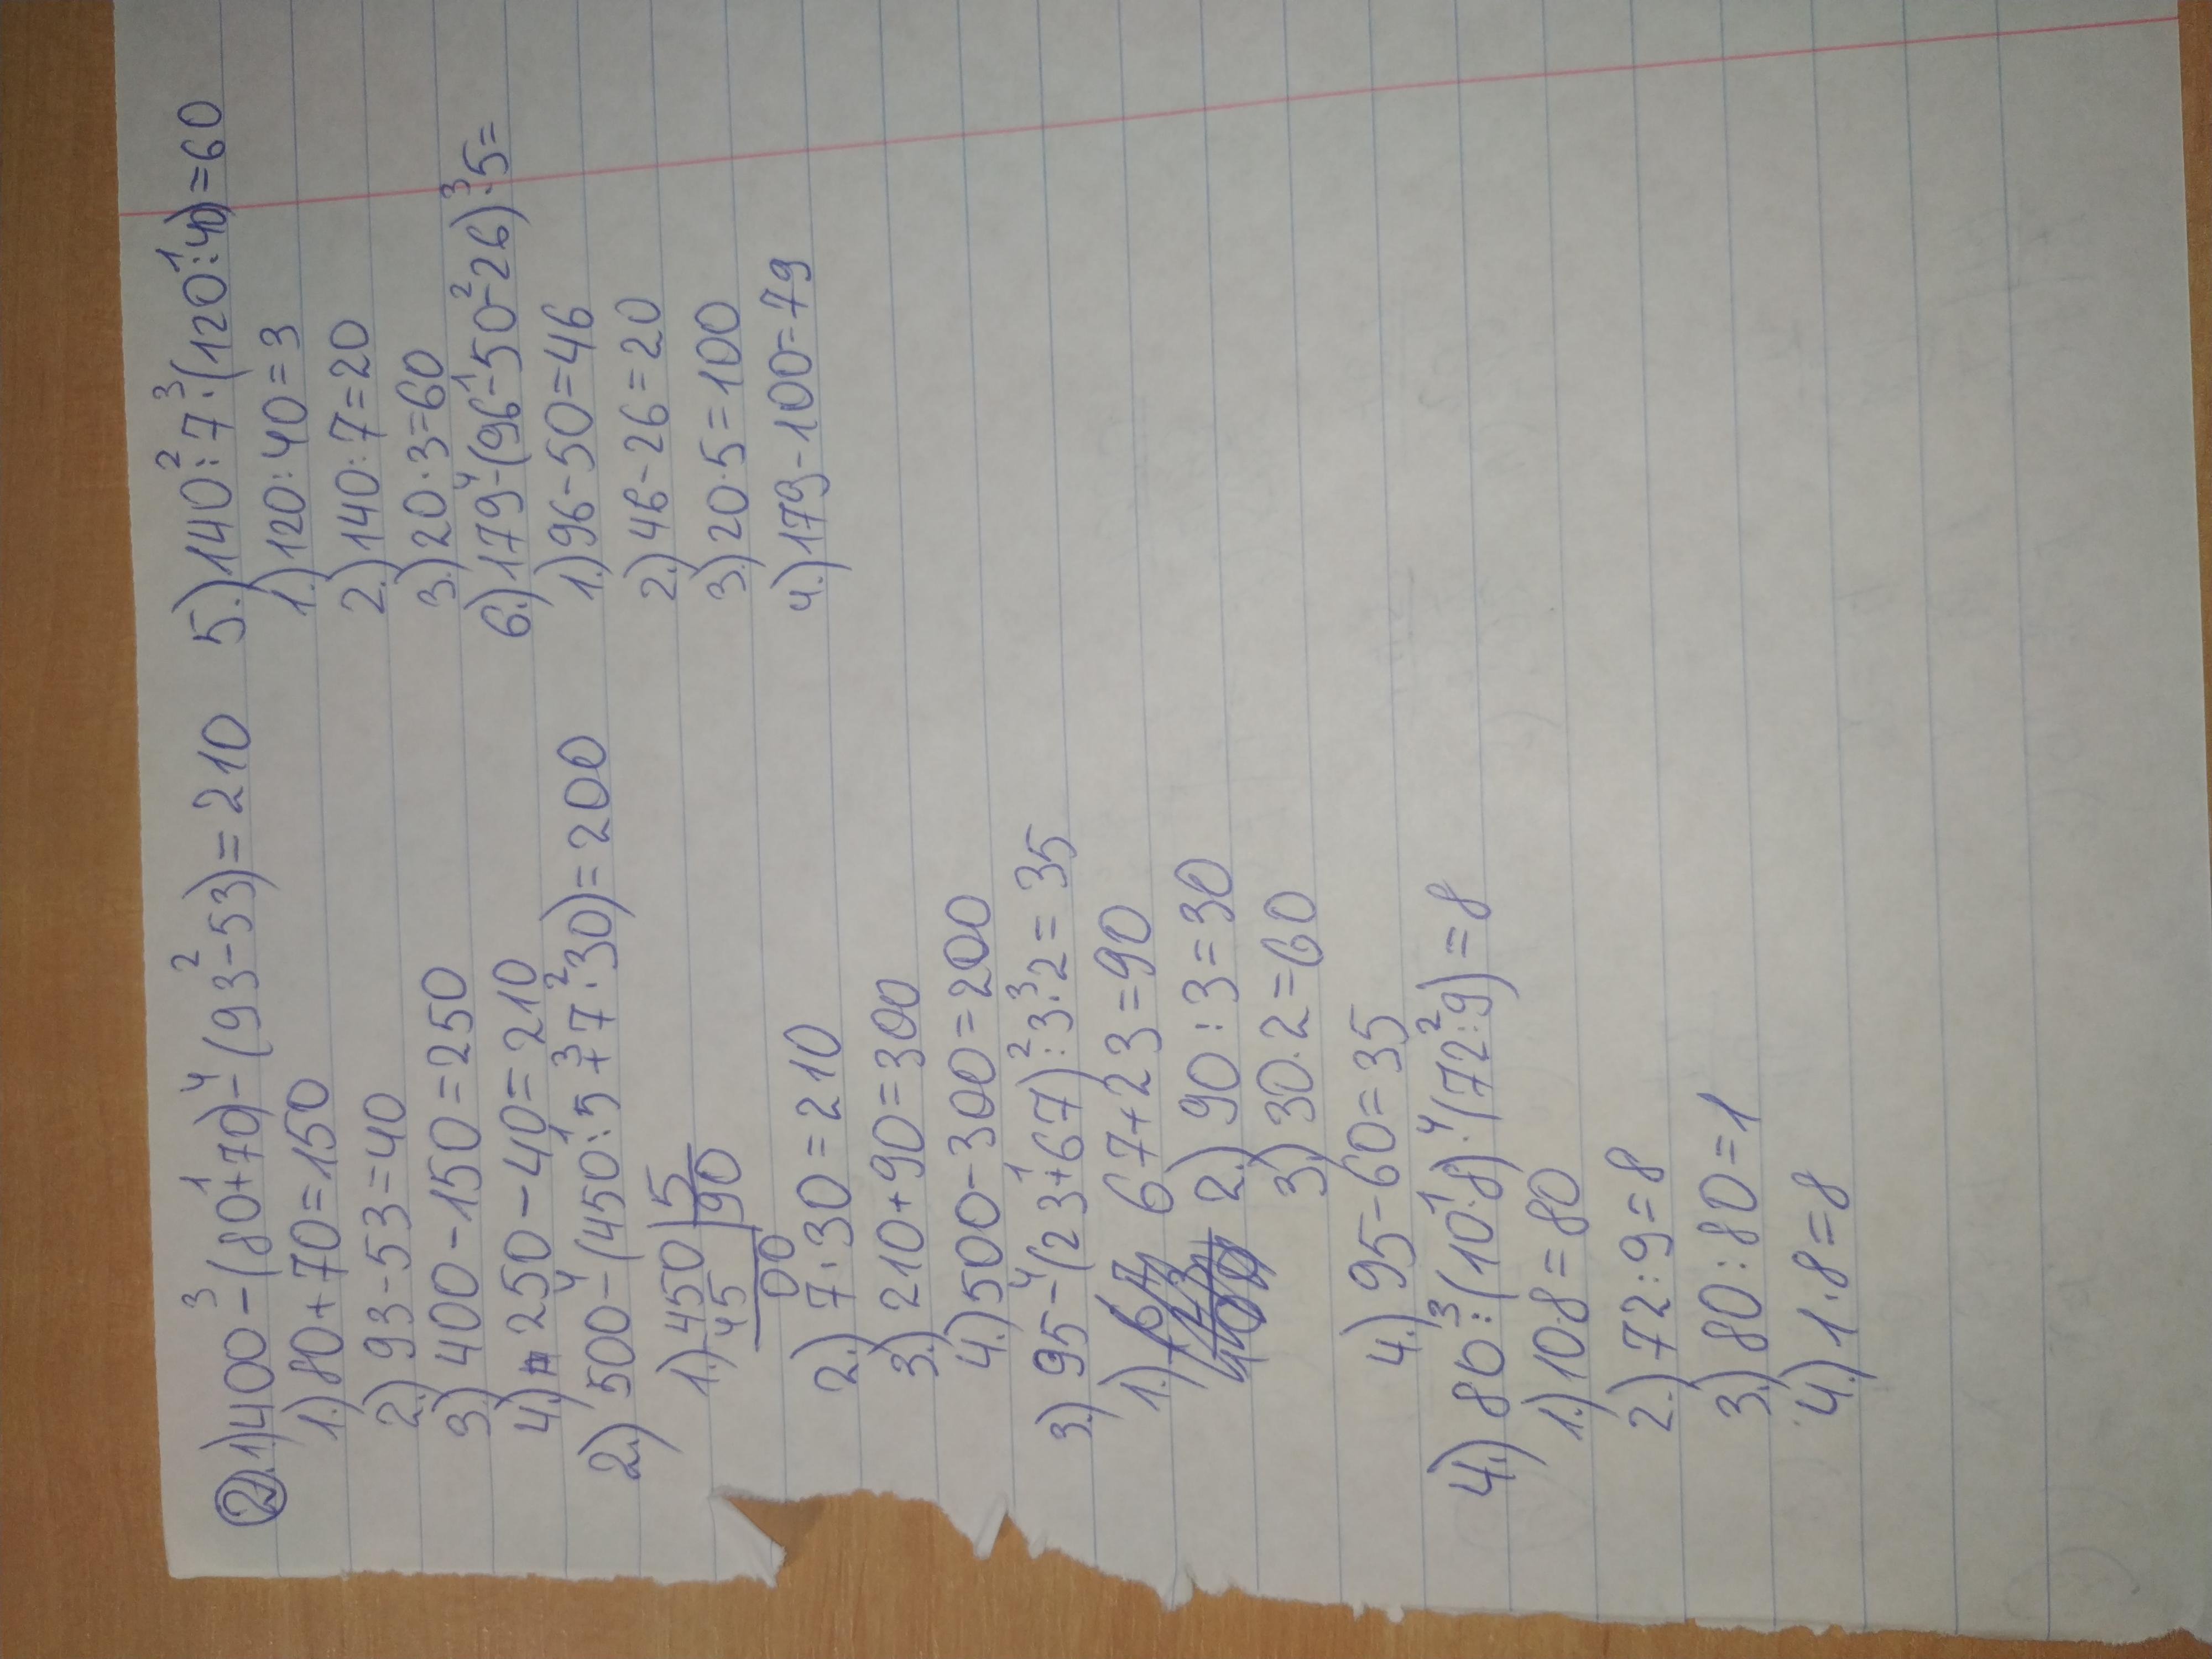 2.) 1.) 400 - (80+70) - (93-53) = 210
3 1 4 2
1.) 80+70=150
2.) 93-53=40
3) 400-150=250
4.) 250-40=210
2.) 500 - (450:5+7·30) = 200
4 1 3 2
1.) 450 | 5
45 | 90
00
2.) 7·30=210
3.) 210+90=300
4.) 500-300=200
3.) 95 - (23+67):3·2 = 35
4 1 2 3
1.) 67+23=90
2.) 90:3=30
3.) 30·2=60
4.) 95-60=35
4.) 80:(10·8)·(72:9)=8
3 1 4 2
1.) 10·8=80
2.) 72:9=8
3.) 80:80=1
4.) 1·8=8
5.) 140:7·(120:40)=60
2 3 1
1.) 120:40=3
2.) 140:7=20
3.) 20·3=60
6.) 179-(96-50-26)·5=
4 1 2 3
1.) 96-50=46
2.) 46-26=20
3.) 20·5=100
4.) 179-100=79